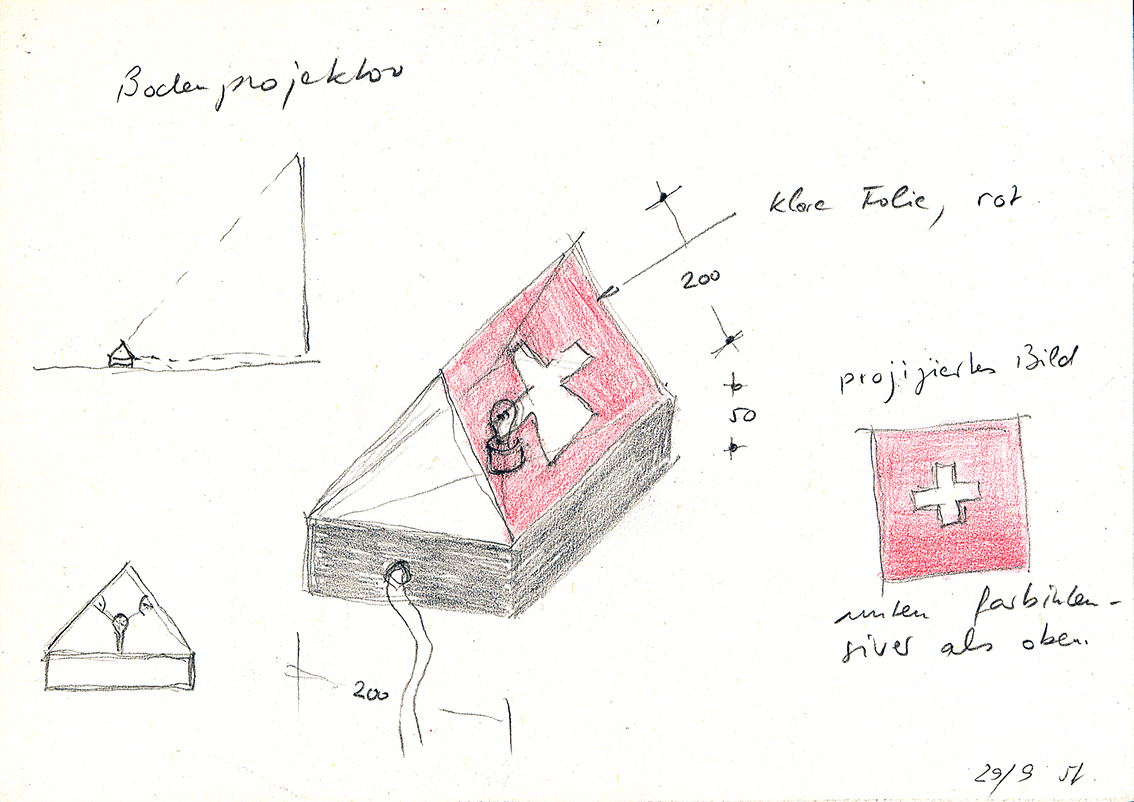 Bodenprojektor
klare Folie, rot
200
50
projiziertes Bild
unten farbinten-
siver als oben.
200
29/9